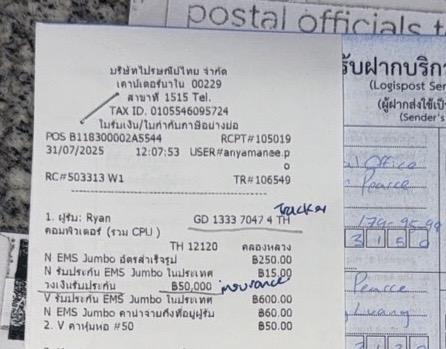 postal officials t
บริษัทไปรษณีย์ไทย จำกัด
เคาน์เตอร์นาใน 00229
สาขาที่ 1515 Tel.
TAX ID. 0105546095724
ใบรับเงิน/ใบกำกับภาษีอย่างย่อ
POS B118300002A5544 RCPT#105019
31/07/2025 12:07:53 USER#anyamanee.p
o
RC#503313 W1 TR#106549
1. ผู้รับ: Ryan GD 1333 7047 4 TH Tracker
คอมพิวเตอร์ (รวม CPU )
TH 12120 คลองหลวง
N EMS Jumbo อัตราสำเร็จรูป ฿250.00
N รับประกัน EMS Jumbo ในประเทศ ฿15.00
วงเงินรับประกัน ฿50,000 insurance
V รับประกัน EMS Jumbo ในประเทศ ฿600.00
N EMS Jumbo ค่านำจ่ายถึงที่อยู่ผู้รับ ฿60.00
2. V ค่าหุ้มห่อ #50 ฿50.00
รับฝากบริกา
(Logispost Ser
(ผู้ฝากส่งใช้เป็
(Sender's
Office
Pearce
3150
Pearce
Luang